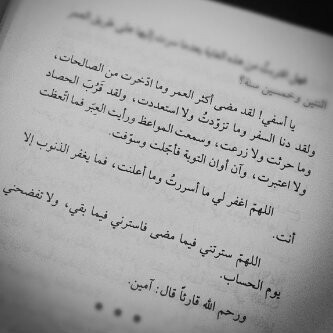 اثنين وخمسين سنة؟
يا أسفي! لقد مضى أكثر العمر وما ادّخرت من الصالحات،
ولقد دنا السفر وما تزوّدتُ ولا استعددت، ولقد قَرُبَ الحصاد
وما حرثت ولا زرعت، وسمعت المواعظ ورأيت العِبَر فما اتّعظت
ولا اعتبرت، وآن أوان التوبة فأجّلت وسوّفت.
اللهمّ اغفر لي ما أسررتُ وما أعلنت، فما يغفر الذنوب إلا
أنت.
اللهمّ سترتني فيما مضى فاسترني فيما بقي، ولا تفضحني
يوم الحساب.
ورحم الله قارئاً قال: آمين.